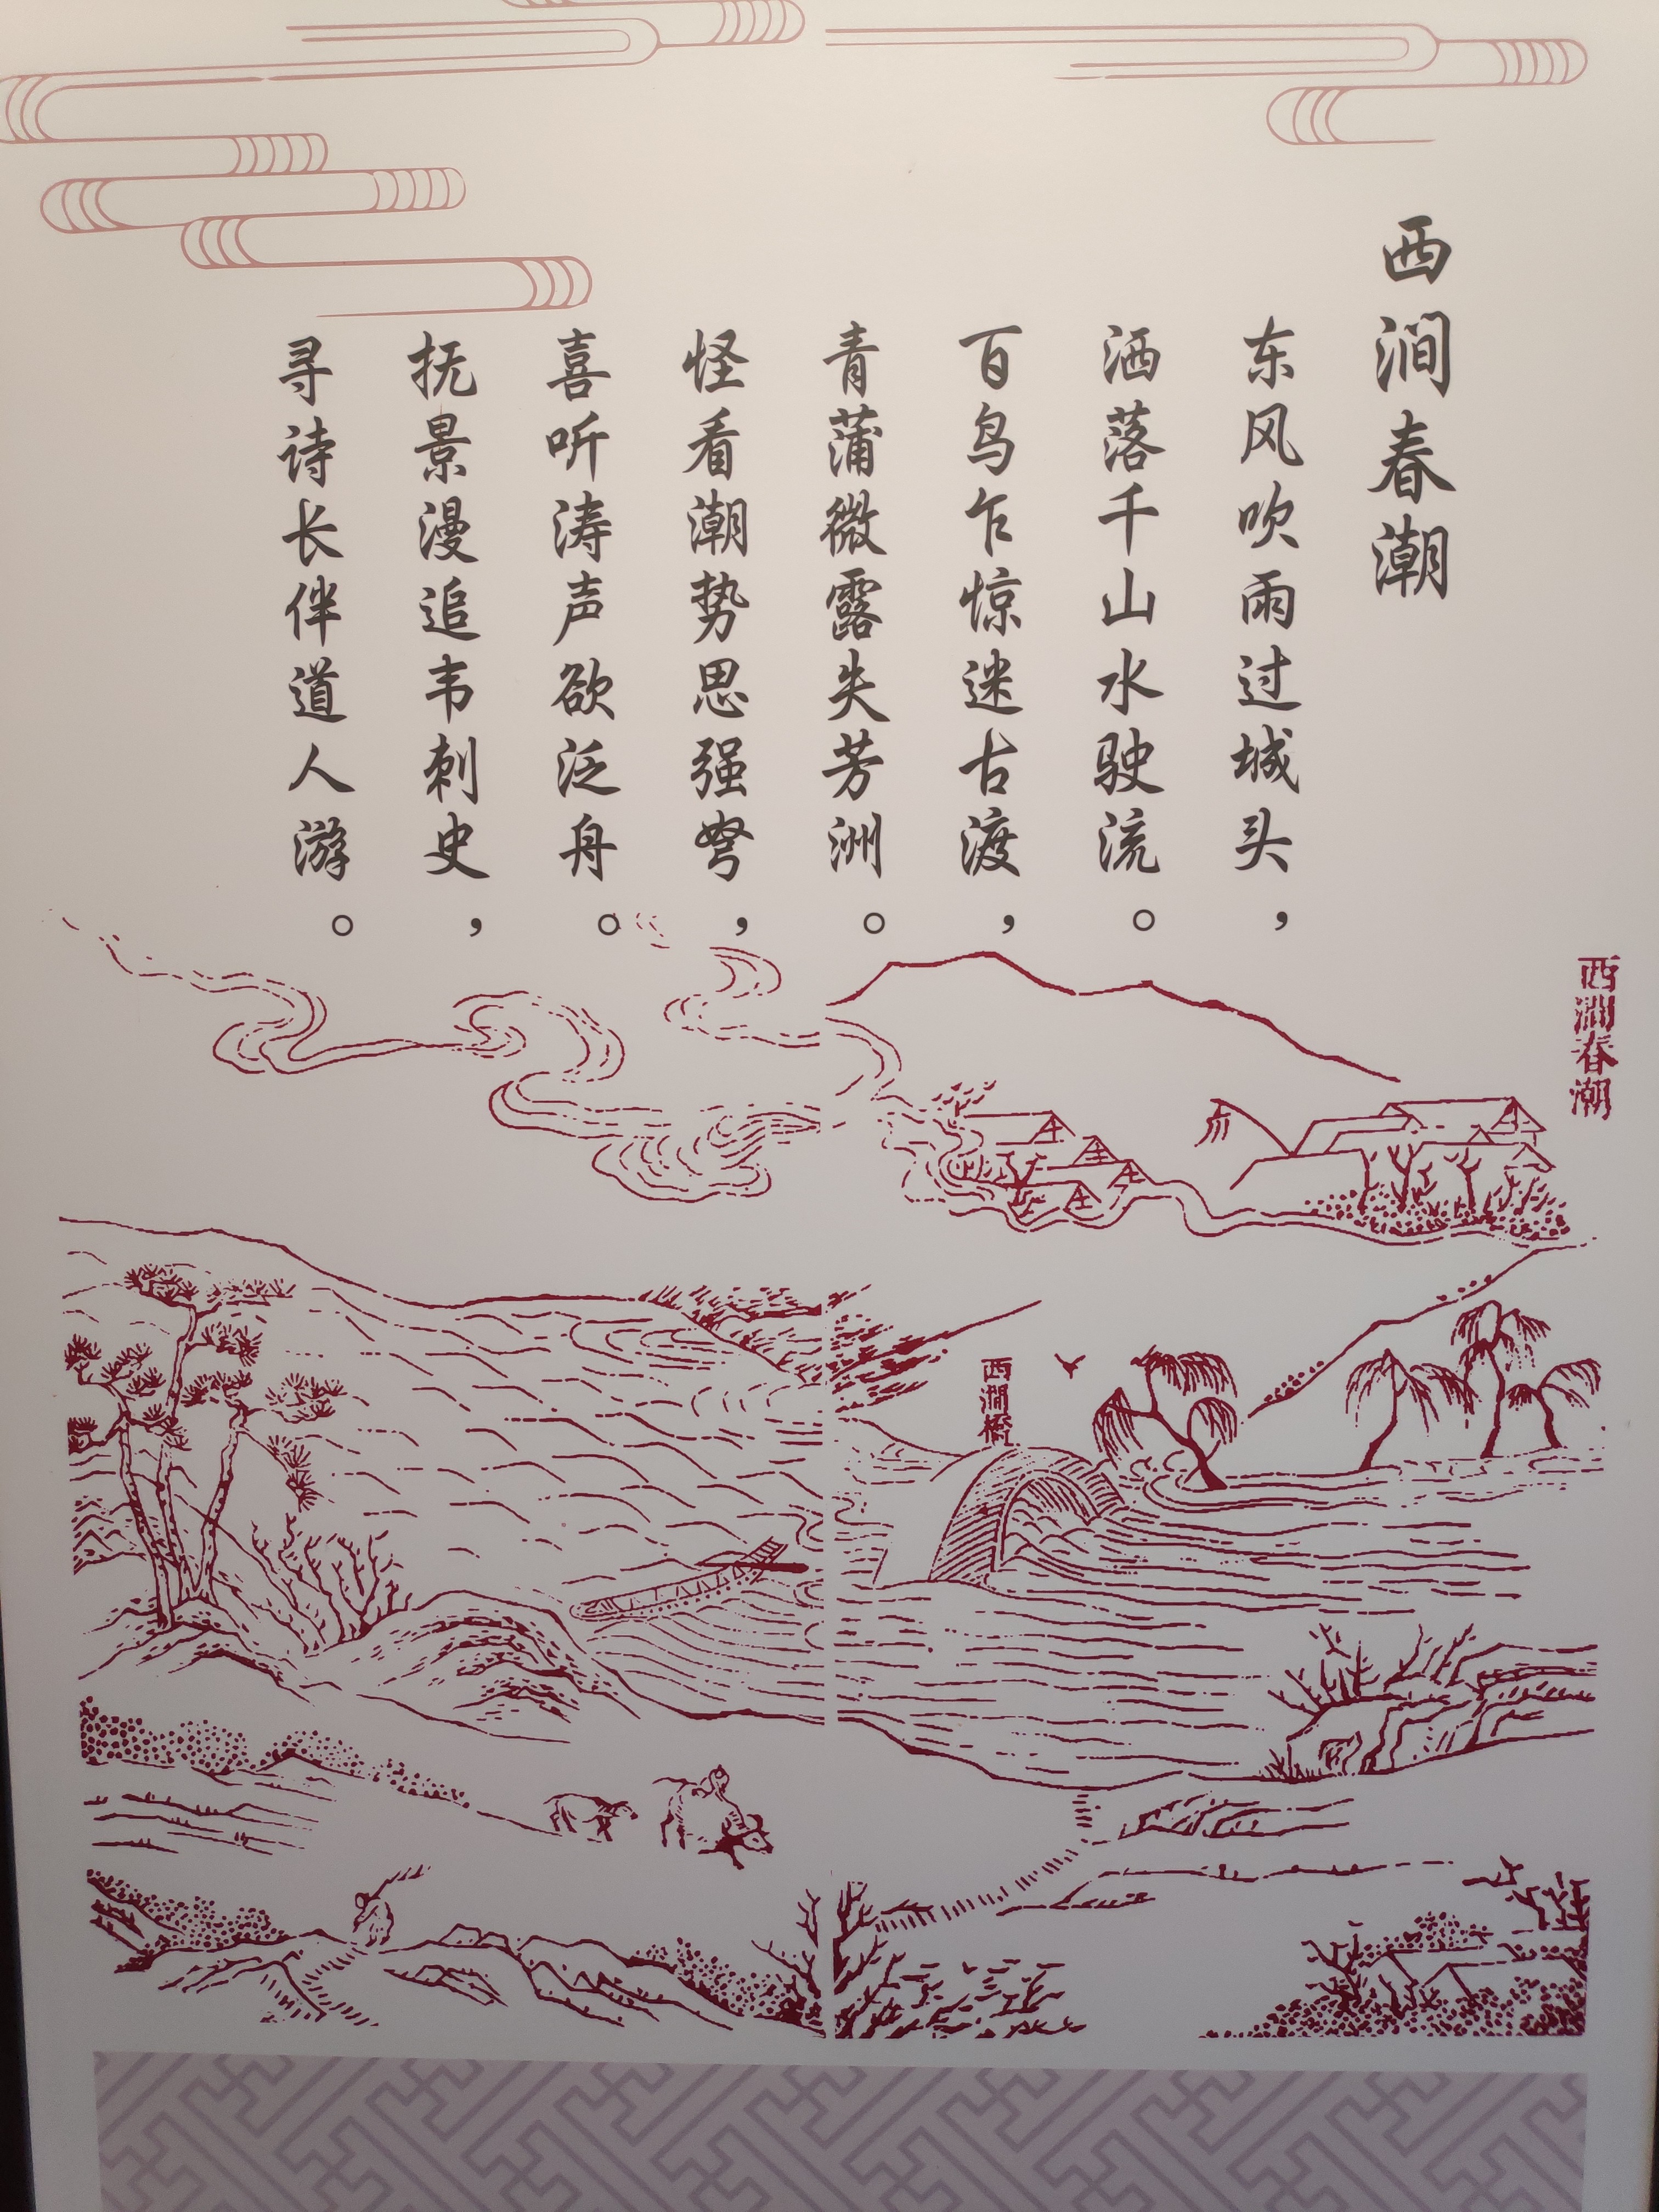 西涧春潮
东风吹雨过城头，
洒落千山水驶流。
百鸟乍惊迷古渡，
青蒲微露失芳洲。
怪看潮势思强弩，
喜听涛声欲泛舟。
抚景漫追韦刺史，
寻诗长伴道人游。
西澗春潮
西澗橋